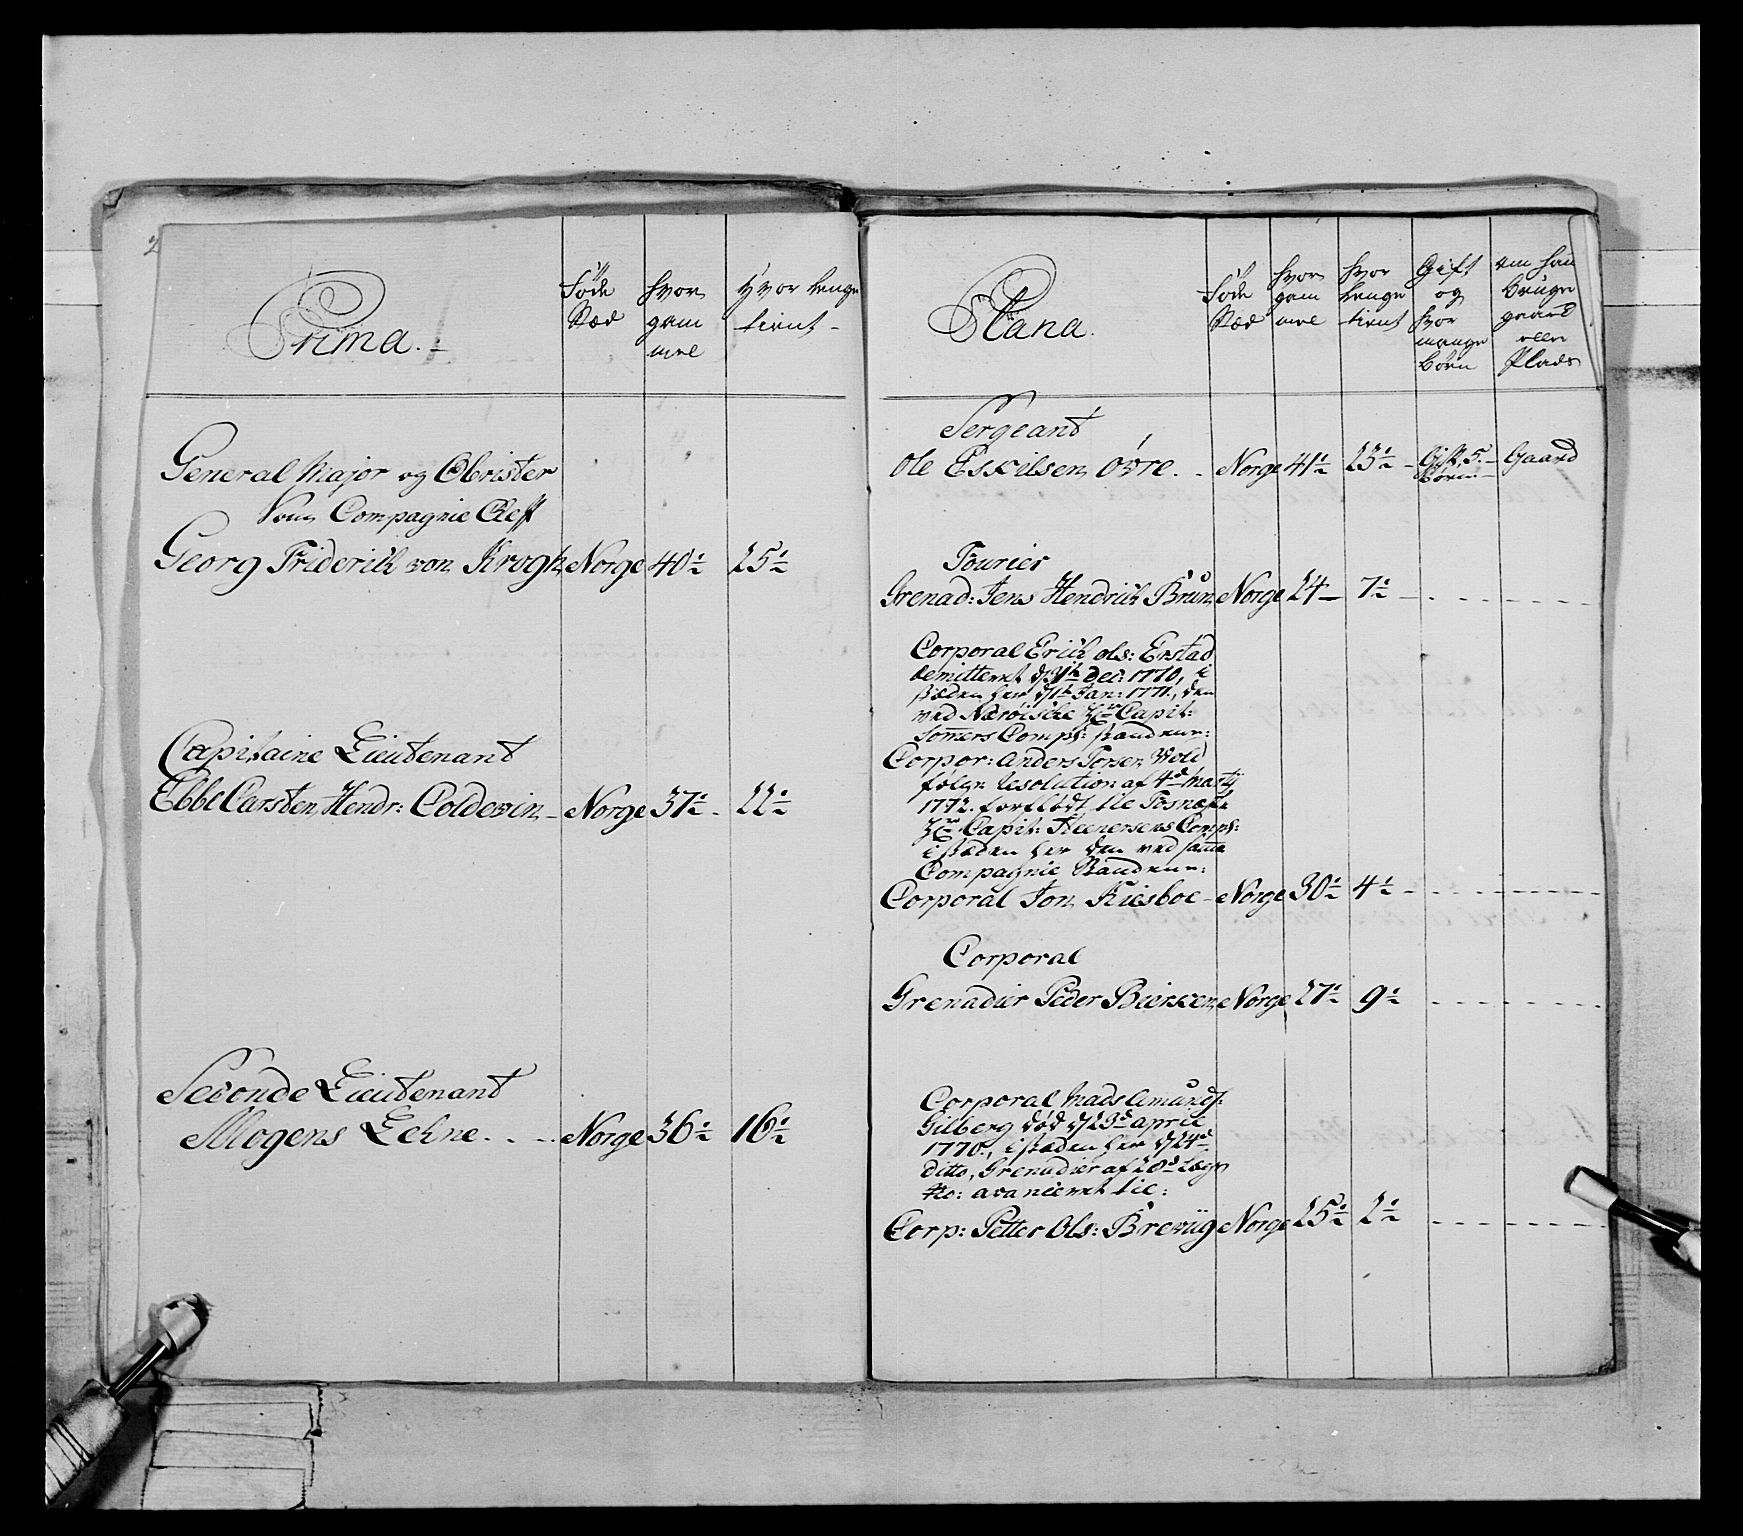 2
Prima.
Føde Stæd
Hvor gam mel
Hvor lenge tient
General Major og Obrister
Som Compagnie Cheff
Georg Friderich von Krogh Norge 40 1/2 25 1/2
Capitaine Lieutenant
Ebbe Carsten Hendr: Coldevin Norge 37 1/2 22 1/2
Seconde Lieutenant
Mogens Lehne Norge 36 1/2 16 1/2
Plana.
Føde Stæd
hvor gam mel
hvor lenge tient
Gift og hvor mange børn
om han bruger gaard eller Plads
Sergeant
Ole Eskilsen Øvre Norge 41 1/2 23 1/2 Gift, 5. Børn Gaard
Fourier
Grenad: Jens Hendrich Brun Norge 24 7 1/2
Corporal Erich Ols: Enstad
demitteret d 31te Dec: 1770, i
stæden her d 1te Jan: 1771, den
ved Nærøiske Comp
Somers Comp: standene:
Corpor: Anders Torsen Wold
følge Resolution af 4de Martij
1772. forflødt til Fosnæske
Capit: Comp:
i stæden her den ved samme
Compagnie Standene:
Corporal Jon Kiesboe Norge 30 1/2 4 1/2
Corporal
Grenadier Peder Biersen Norge 27 1/2 9 1/2
Corporal Mads Amunds:
Gilberg død d 23de april
1770, i stæden her d 24de
ditto, Grenadier af 20de Lægs
No: avanceret til:
Corp: Petter Ols: Brevüg Norge 25 1/2 2 1/2